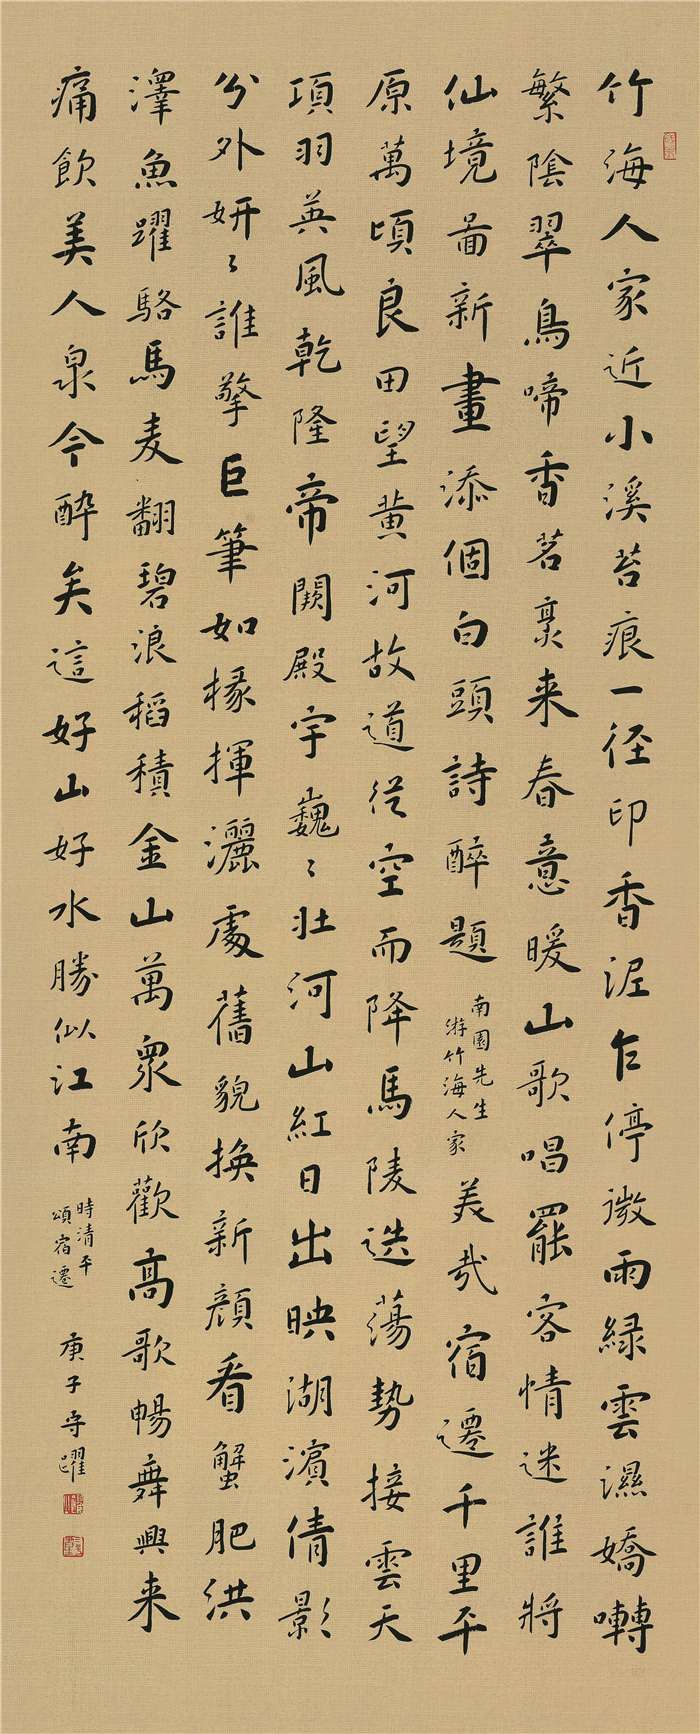 竹海人家近小溪苔痕一径印香泥乍停微雨緑雲濕嬌囀
繁陰翠鳥啼香茗裊来春意暖山歌唱罷客情迷誰將
仙境啚新畫添個白頭詩醉題
南園先生
游竹海人家
美哉宿遷千里平
原萬頃良田望黄河故道從空而降馬陵迭蕩勢接雲天
項羽英風乾隆帝闕殿宇巍〻壯河山紅日出映湖濱倩影
分外妍〻誰擎巨筆如椽揮灑處舊貌换新顔看蟹肥洪
澤魚躍駱馬麦翻碧浪稻積金山萬衆欣歡高歌暢舞興来
痛飲美人泉今醉矣這好山好水勝似江南
時清平
頌宿遷
庚子守躍